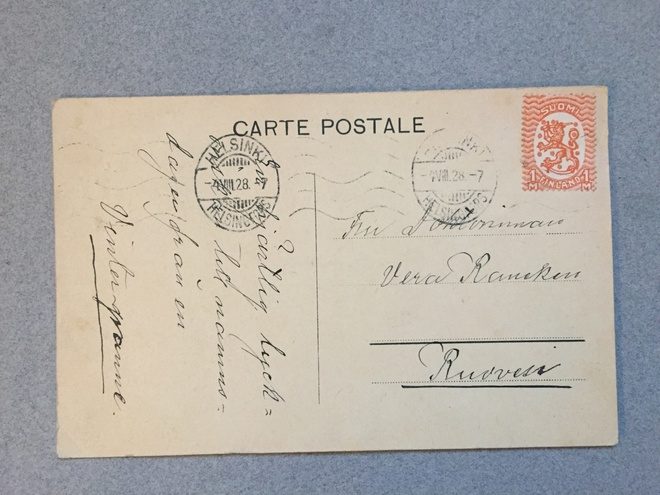 CARTE POSTALE
SUOMI
1 M FINLAND 1 M
HELSINKI
4.VIII.28.-7
HELSINGFORS
HELSINKI
4.VIII.28.-7
HELSINGFORS
En hjärtlig lyck=
önskan till namns=
dagen från en
Vintergranne.
Fru
Vera Rancken
Ruovesi